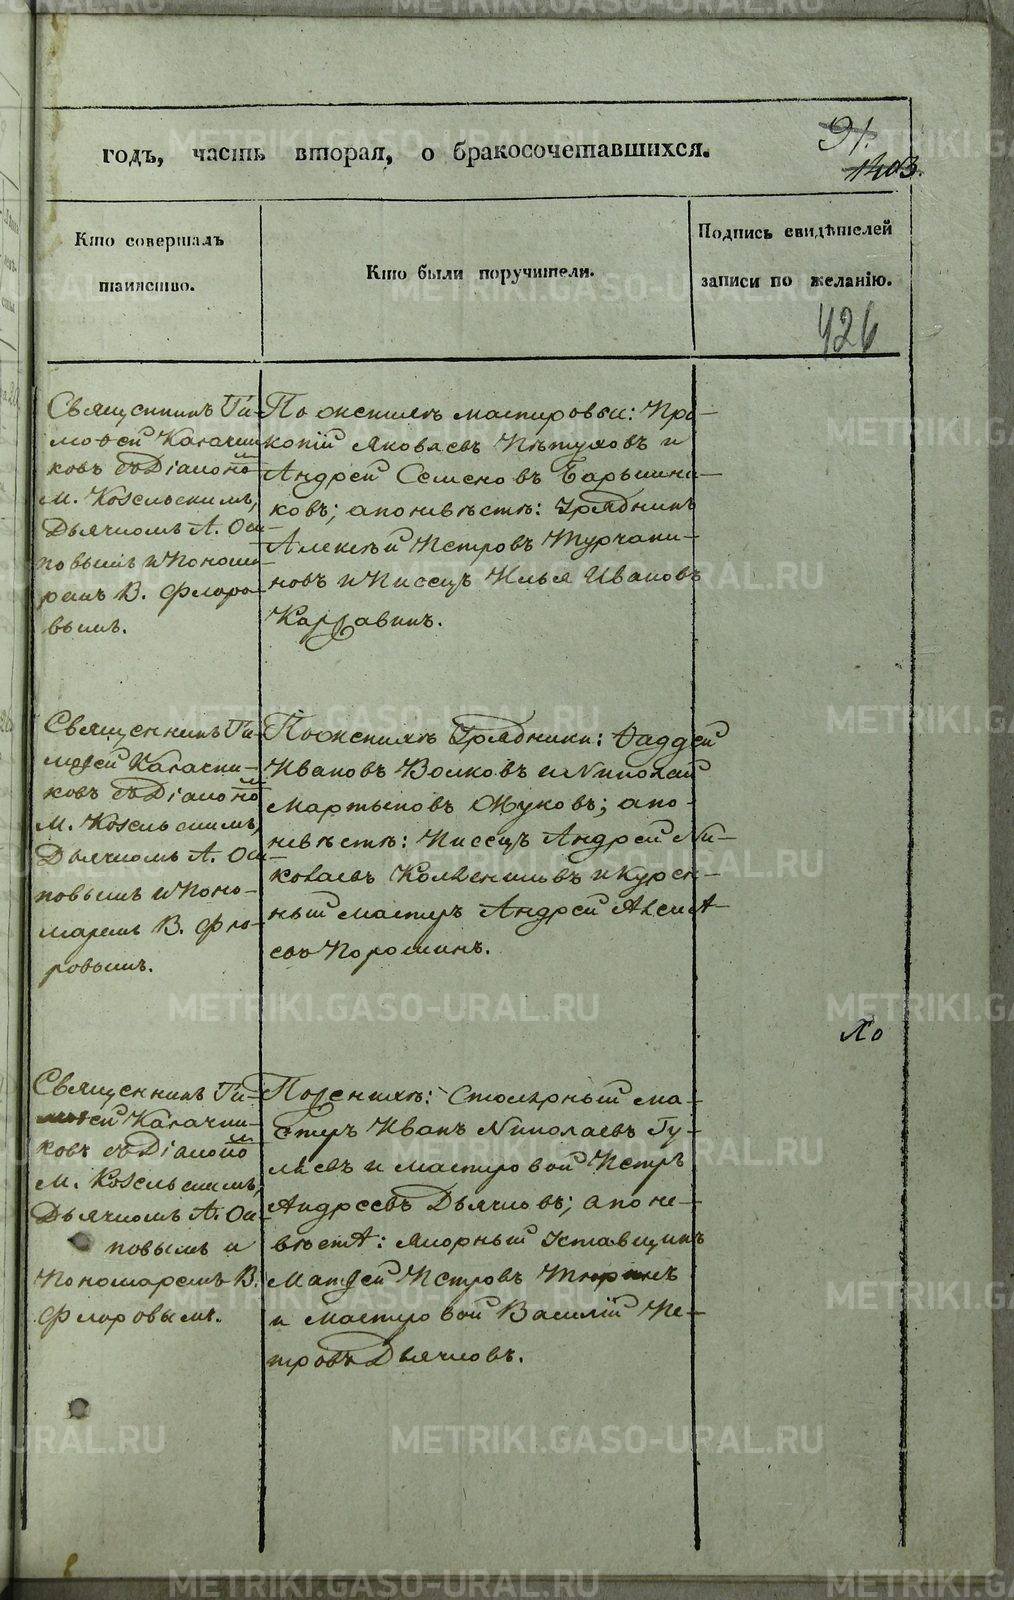 годъ, часть вторая, о бракосочетавшихся.
91.
1403.
Кто совершалъ
таинство.
Кто были поручители.
Подпись свидѣтелей
записи по желанію.
426
Священникъ Ти-
моѳей Калачни-
ковъ съ Діакон̃о
М. Козельскимъ,
Дьячкомъ А. Оси-
повымъ и Понома-
ремъ В. Флоро-
вымъ.
По женихѣ мастировые: Про-
копій Яковлевъ Пѣтуховъ и
Андрей Семеновъ Барышни-
ковъ; а по невѣстѣ: Урядникъ
Алексѣй Петровъ Турчани-
новъ и Писецъ Илья Ивановъ
Карѓавинъ.
Священникъ Ти-
моѳей Калачни-
ковъ съ Діаконо
М. Козельскимъ,
Дьячкомъ А. Оси-
повымъ и Поно-
маремъ В. Фло-
ровымъ.
По женихѣ Урядники: Ѳаддей
Ивановъ Волковъ и Николай
Мартыновъ Жуковъ; а по
невѣстѣ: Писецъ Андрей Ни-
колаевъ и Курен-
ный мастеръ Андрей Алексѣ-
евъ Порошинъ.
Священникъ Ти-
моѳей Калачни-
ковъ съ Діаконо
М. Козельскимъ,
Дьячкомъ А. Оси-
повымъ и
Пономаремъ В.
Флоровымъ.
По женихѣ: Столярный ма-
стеръ Иванъ Николаевъ Гу-
ляевъ и мастировой Петръ
Андреевъ Дьячковъ; а по не-
вѣстѣ: Якорный Уставщикъ
Матѳей Петровъ Тюринъ
и мастировой Василій Пе-
тровъ Дьячковъ.
METRIKI.GASO-URAL.RU